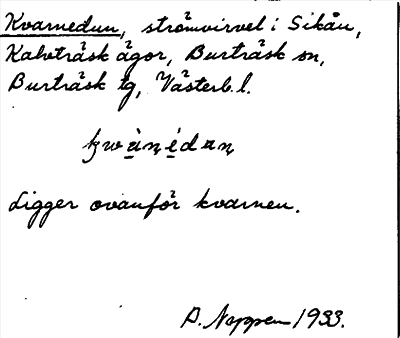 Kvarnedun, strömvirvel i Sikån,
Kalvträsk ägor, Burträsk sn,
Burträsk tg, Västerb. l.
Ligger ovanför kvarnen.
1933.